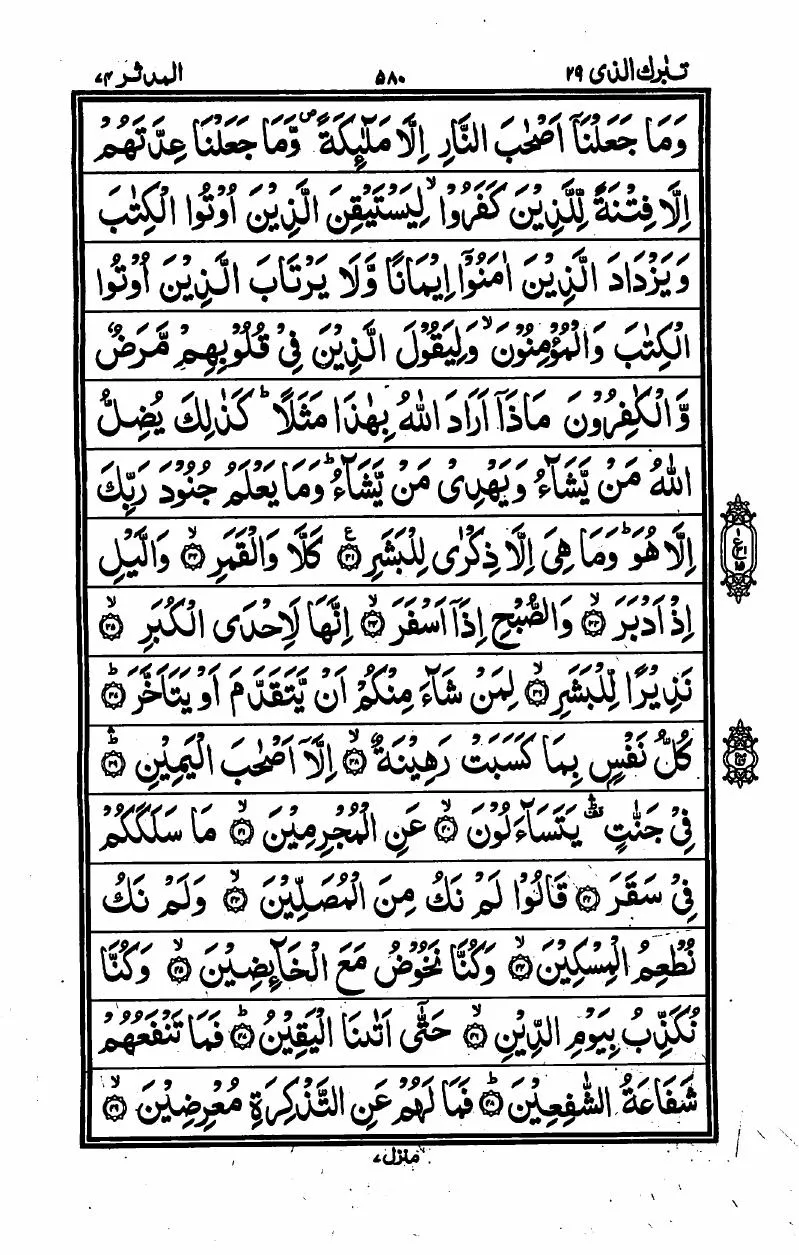 تبٰرك الذی ۲۹
۵۸۰
المدثر ۷۴
وَمَا جَعَلْنَاۤ اَصْحٰبَ النَّارِ اِلَّا مَلٰٓئِكَةً ۪ وَّمَا جَعَلْنَا عِدَّتَهُمْ
اِلَّا فِتْنَةً لِّلَّذِیْنَ كَفَرُوْا ۙ لِیَسْتَیْقِنَ الَّذِیْنَ اُوْتُوا الْكِتٰبَ
وَیَزْدَادَ الَّذِیْنَ اٰمَنُوْۤا اِیْمَانًا وَّلَا یَرْتَابَ الَّذِیْنَ اُوْتُوا
الْكِتٰبَ وَالْمُؤْمِنُوْنَ ۙ وَلِیَقُوْلَ الَّذِیْنَ فِیْ قُلُوْبِهِمْ مَّرَضٌ
وَّالْكٰفِرُوْنَ مَاذَاۤ اَرَادَ اللّٰهُ بِهٰذَا مَثَلًا ؕ كَذٰلِكَ یُضِلُّ
اللّٰهُ مَنْ یَّشَآءُ وَیَهْدِیْ مَنْ یَّشَآءُ ؕ وَمَا یَعْلَمُ جُنُوْدَ رَبِّكَ
اِلَّا هُوَ ؕ وَمَا هِیَ اِلَّا ذِكْرٰی لِلْبَشَرِ ۳۱ ع كَلَّا وَالْقَمَرِ ۳۲ ۙ وَالَّیْلِ
اِذْ اَدْبَرَ ۳۳ ۙ وَالصُّبْحِ اِذَاۤ اَسْفَرَ ۳۴ ۙ اِنَّهَا لَاِحْدَی الْكُبَرِ ۳۵ ۙ
نَذِیْرًا لِّلْبَشَرِ ۳۶ ۙ لِمَنْ شَآءَ مِنْكُمْ اَنْ یَّتَقَدَّمَ اَوْ یَتَاَخَّرَ ۳۷ ؕ
كُلُّ نَفْسٍۭ بِمَا كَسَبَتْ رَهِیْنَةٌ ۳۸ ۙ اِلَّاۤ اَصْحٰبَ الْیَمِیْنِ ۳۹ ؕ
فِیْ جَنّٰتٍ ۛ یَتَسَآءَلُوْنَ ۴۰ ۙ عَنِ الْمُجْرِمِیْنَ ۴۱ ۙ مَا سَلَكَكُمْ
فِیْ سَقَرَ ۴۲ قَالُوْا لَمْ نَكُ مِنَ الْمُصَلِّیْنَ ۴۳ ۙ وَلَمْ نَكُ
نُطْعِمُ الْمِسْكِیْنَ ۴۴ ۙ وَكُنَّا نَخُوْضُ مَعَ الْخَآئِضِیْنَ ۴۵ ۙ وَكُنَّا
نُكَذِّبُ بِیَوْمِ الدِّیْنِ ۴۶ ۙ حَتّٰۤی اَتٰىنَا الْیَقِیْنُ ۴۷ ؕ فَمَا تَنْفَعُهُمْ
شَفَاعَةُ الشّٰفِعِیْنَ ۴۸ ؕ فَمَا لَهُمْ عَنِ التَّذْكِرَةِ مُعْرِضِیْنَ ۴۹ ۙ
منزل ۷